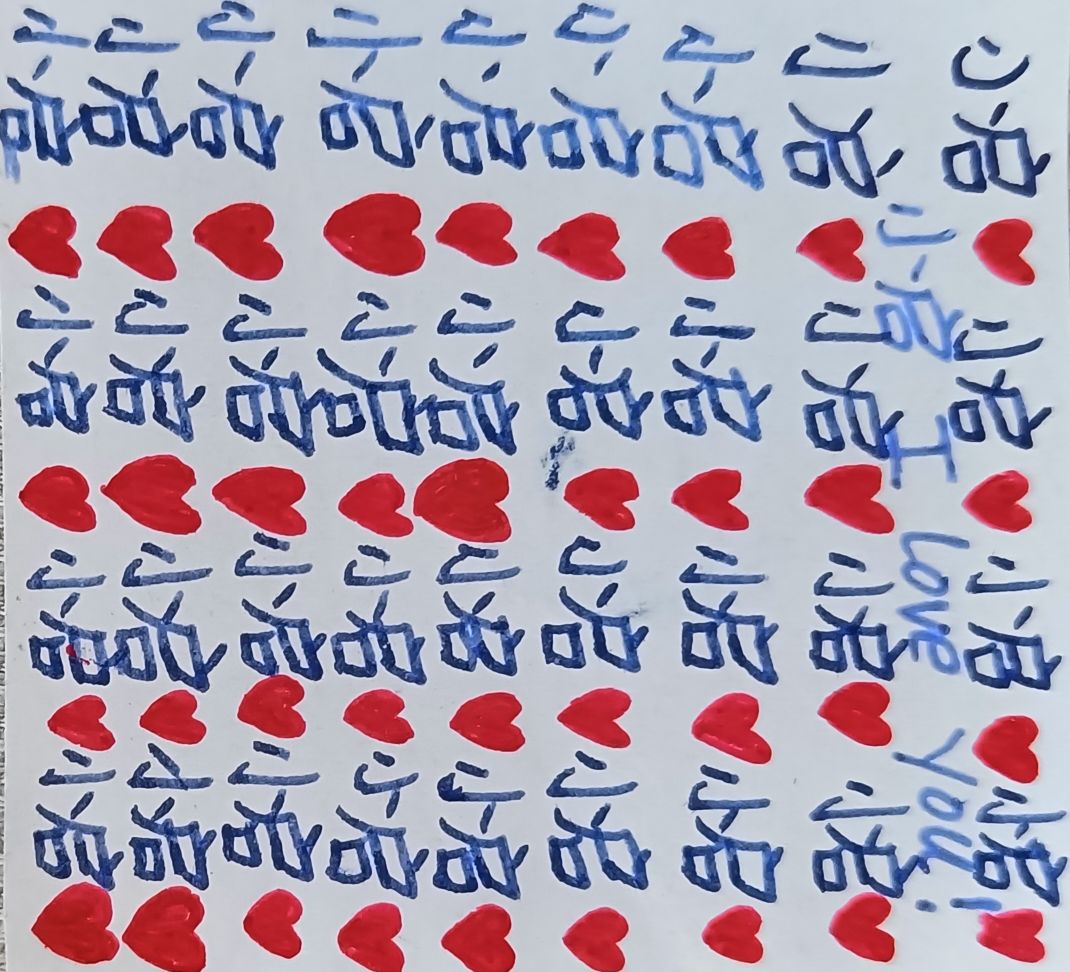 小君 小君 小君 小君
小君 I Love You!
小君 小君 小君 小君
小君 小君 小君 小君
小君 小君 小君 小君
小君 小君 小君 小君
小君 小君 小君 小君
小君 小君 小君 小君
小君 小君 小君 小君
小君 小君 小君 小君